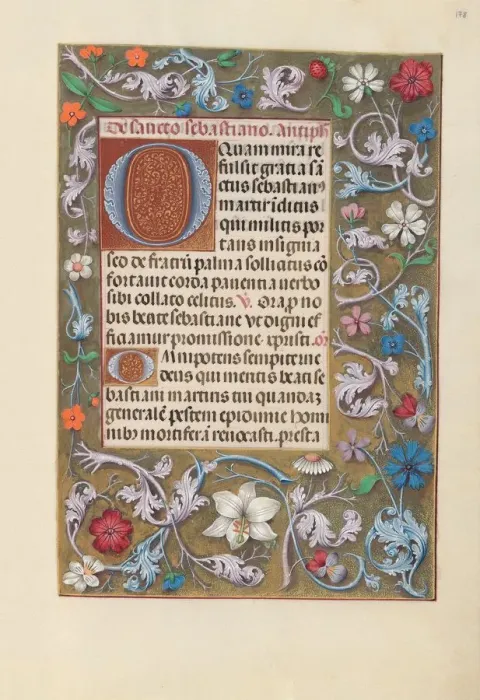 178
De sancto sebastiano. Antiph
Quam mira re
fulsit gratia sā
ctus sebastianꝰ
martir īclitus
qui militis por
tans insignia
sed de fratrū palma sollicitus cō
fortauit corda pauentia verbo
sibi collato celitus. V. Ora p no
bis beate sebastiane vt digni ef
ficiamur promissione xpristi. or
Omnipotens sempiterne
deus qui mentis beati se
bastiani martiris tui quandaz
generalē pestem epidimie homi
nibꝫ mortiferā reuocasti. presta